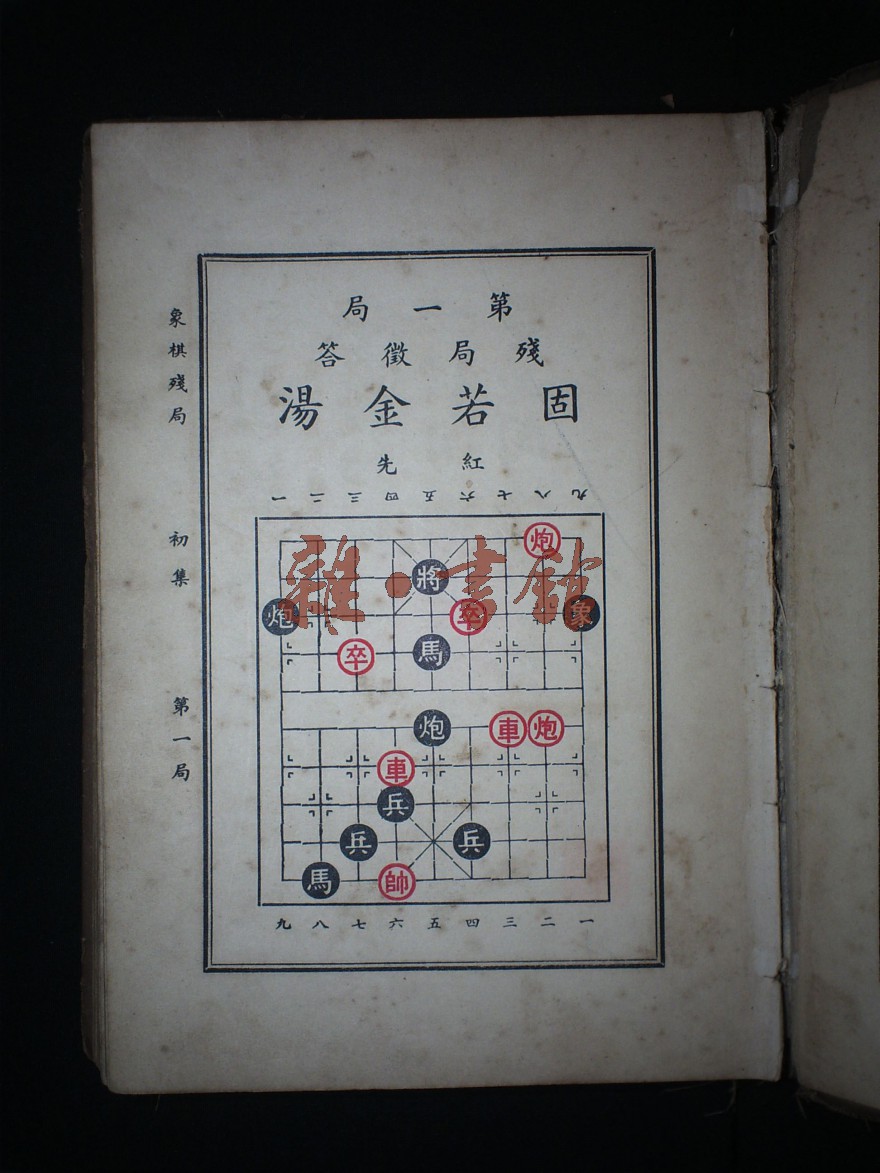 第一局
殘局徵答
固若金湯
紅先
一二三四五六七八九
炮
將
炮卒象
卒馬
炮車炮
車
兵
兵兵
馬帥
九八七六五四三二一
象棋殘局 初集 第一局
雜·書館